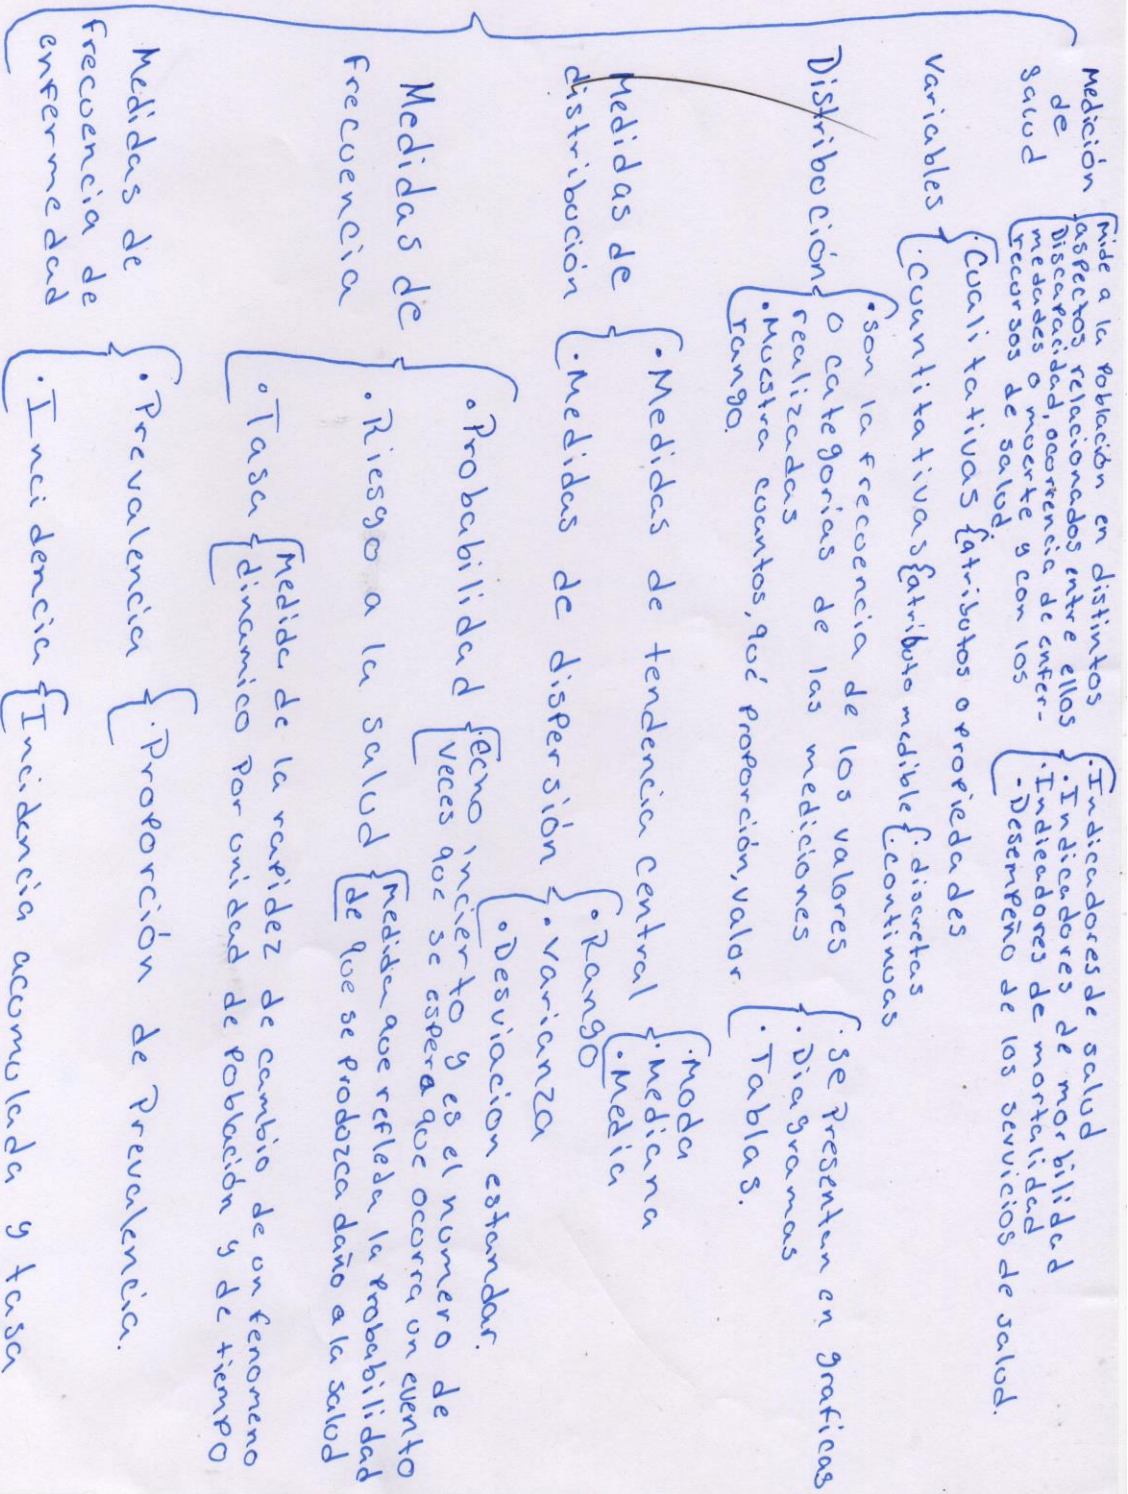 Medición
de
salud
Mide a la población en distintos
aspectos relacionados entre ellos
Discapacidad, ocurrencia de enfer-
medades o muerte y con los
recursos de salud.
·Indicadores de salud
·Indicadores de morbilidad
·Indicadores de mortalidad
·Desempeño de los servicios de salud.
Variables
·Cualitativas {atributos o propiedades
·Cuantitativas {atributo medible {·discretas
·continuas
Distribución
·Son la frecuencia de los valores
o categorías de las mediciones
realizadas
·Muestra cuantos, qué proporción, valor
rango.
·Se presentan en graficas
·Diagramas
·Tablas.
Medidas de
distribución
·Medidas de tendencia central
·Moda
·Mediana
·Media
·Medidas de dispersión
·Rango
·Varianza
·Desviacion estandar.
Medidas de
frecuencia
·Probabilidad
·Echo incierto y es el numero de
veces que se espera que ocurra un evento
·Riesgo a la salud
Medida que refleda la probabilidad
de que se produzca daño a la salud
·Tasa
Medida de la rapidez de cambio de un fenomeno
dinamico por unidad de población y de tiempo
Medidas de
frecuencia de
enfermedad
·Prevalencia {·Proporción de prevalencia.
·Incidencia {Incidencia acumulada y tasa